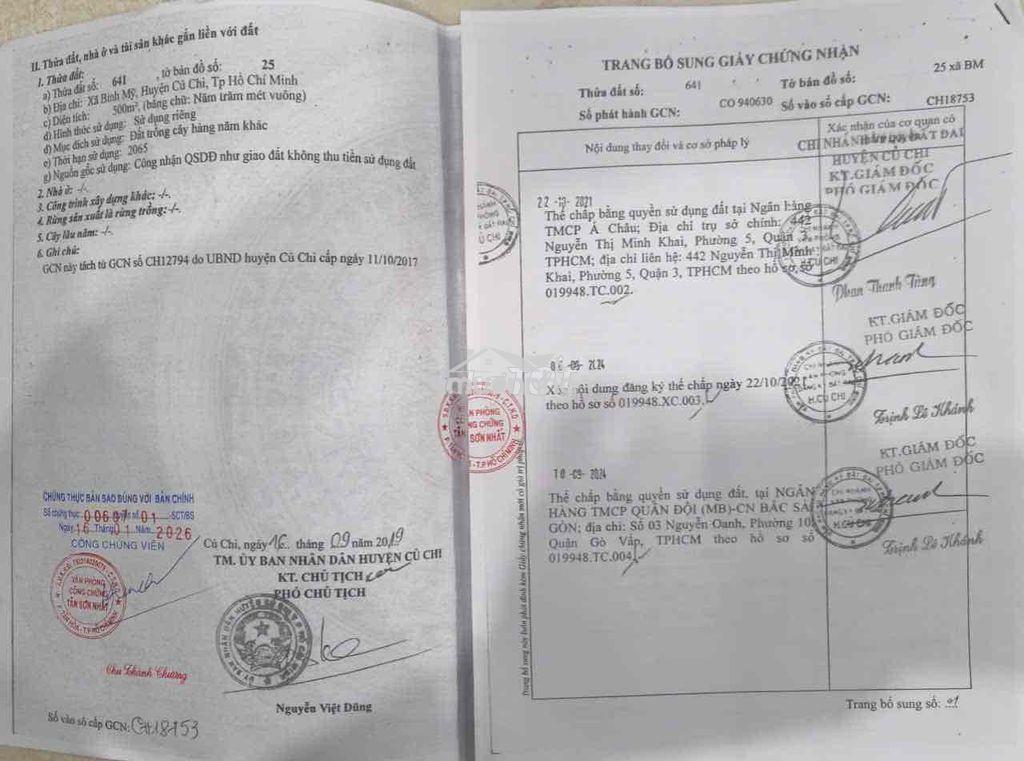 II. Thửa đất, nhà ở và tài sản khác gắn liền với đất
1. Thửa đất:
a) Thửa đất số: 641 , tờ bản đồ số: 25
b) Địa chỉ: Xã Bình Mỹ, Huyện Củ Chi, Tp Hồ Chí Minh
c) Diện tích: 500m², (bằng chữ: Năm trăm mét vuông)
d) Hình thức sử dụng: Sử dụng riêng
đ) Mục đích sử dụng: Đất trồng cây hàng năm khác
e) Thời hạn sử dụng: 2065
g) Nguồn gốc sử dụng: Công nhận QSDĐ như giao đất không thu tiền sử dụng đất
2. Nhà ở: -/-.
3. Công trình xây dựng khác: -/-.
4. Rừng sản xuất là rừng trồng: -/-.
5. Cây lâu năm: -/-.
6. Ghi chú:
GCN này tách từ GCN số CH12794 do UBND huyện Củ Chi cấp ngày 11/10/2017
CHỨNG THỰC BẢN SAO ĐÚNG VỚI BẢN CHÍNH
Số chứng thực 00607 Quyển số 01 -SCT/BS
Ngày 16 Tháng 01 Năm 2026
CÔNG CHỨNG VIÊN
VĂN PHÒNG
CÔNG CHỨNG
TÂN SƠN NHẤT
Chu Thành Chương
Củ Chi, ngày 16 tháng 09 năm 2019
TM. ỦY BAN NHÂN DÂN HUYỆN CỦ CHI
KT. CHỦ TỊCH
PHÓ CHỦ TỊCH
Nguyễn Việt Dũng
Số vào sổ cấp GCN: CH18753
TRANG BỔ SUNG GIẤY CHỨNG NHẬN
Thửa đất số: 641 Tờ bản đồ số: 25 xã BM
Số phát hành GCN: CO 940630 Số vào sổ cấp GCN: CH18753
Nội dung thay đổi và cơ sở pháp lý
Xác nhận của cơ quan có
CHI NHÁNH ĐẤT ĐAI
HUYỆN CỦ CHI
KT.GIÁM ĐỐC
PHÓ GIÁM ĐỐC
22 -10- 2021
Thế chấp bằng quyền sử dụng đất tại Ngân hàng
TMCP Á Châu; Địa chỉ trụ sở chính: 442
Nguyễn Thị Minh Khai, Phường 5, Quận 3,
TPHCM; địa chỉ liên hệ: 442 Nguyễn Thị Minh
Khai, Phường 5, Quận 3, TPHCM theo hồ sơ số
019948.TC.002.
H.CỦ CHI
Phan Thanh Tùng
KT.GIÁM ĐỐC
PHÓ GIÁM ĐỐC
06 -09- 2024
Xóa nội dung đăng ký thế chấp ngày 22/10/2021
theo hồ sơ số 019948.XC.003.
H.CỦ CHI
Trịnh Lê Khánh
KT.GIÁM ĐỐC
PHÓ GIÁM ĐỐC
10 -09- 2024
Thế chấp bằng quyền sử dụng đất, tại NGÂN
HÀNG TMCP QUÂN ĐỘI (MB)-CN BẮC SÀI
GÒN; địa chỉ: Số 03 Nguyễn Oanh, Phường 10,
Quận Gò Vấp, TPHCM theo hồ sơ số
019948.TC.004.
H.CỦ CHI
Trịnh Lê Khánh
VĂN PHÒNG
CÔNG CHỨNG
TÂN SƠN NHẤT
Trang bổ sung này luôn phải đính kèm Giấy chứng nhận mới có giá trị pháp lý
Trang bổ sung số: 01